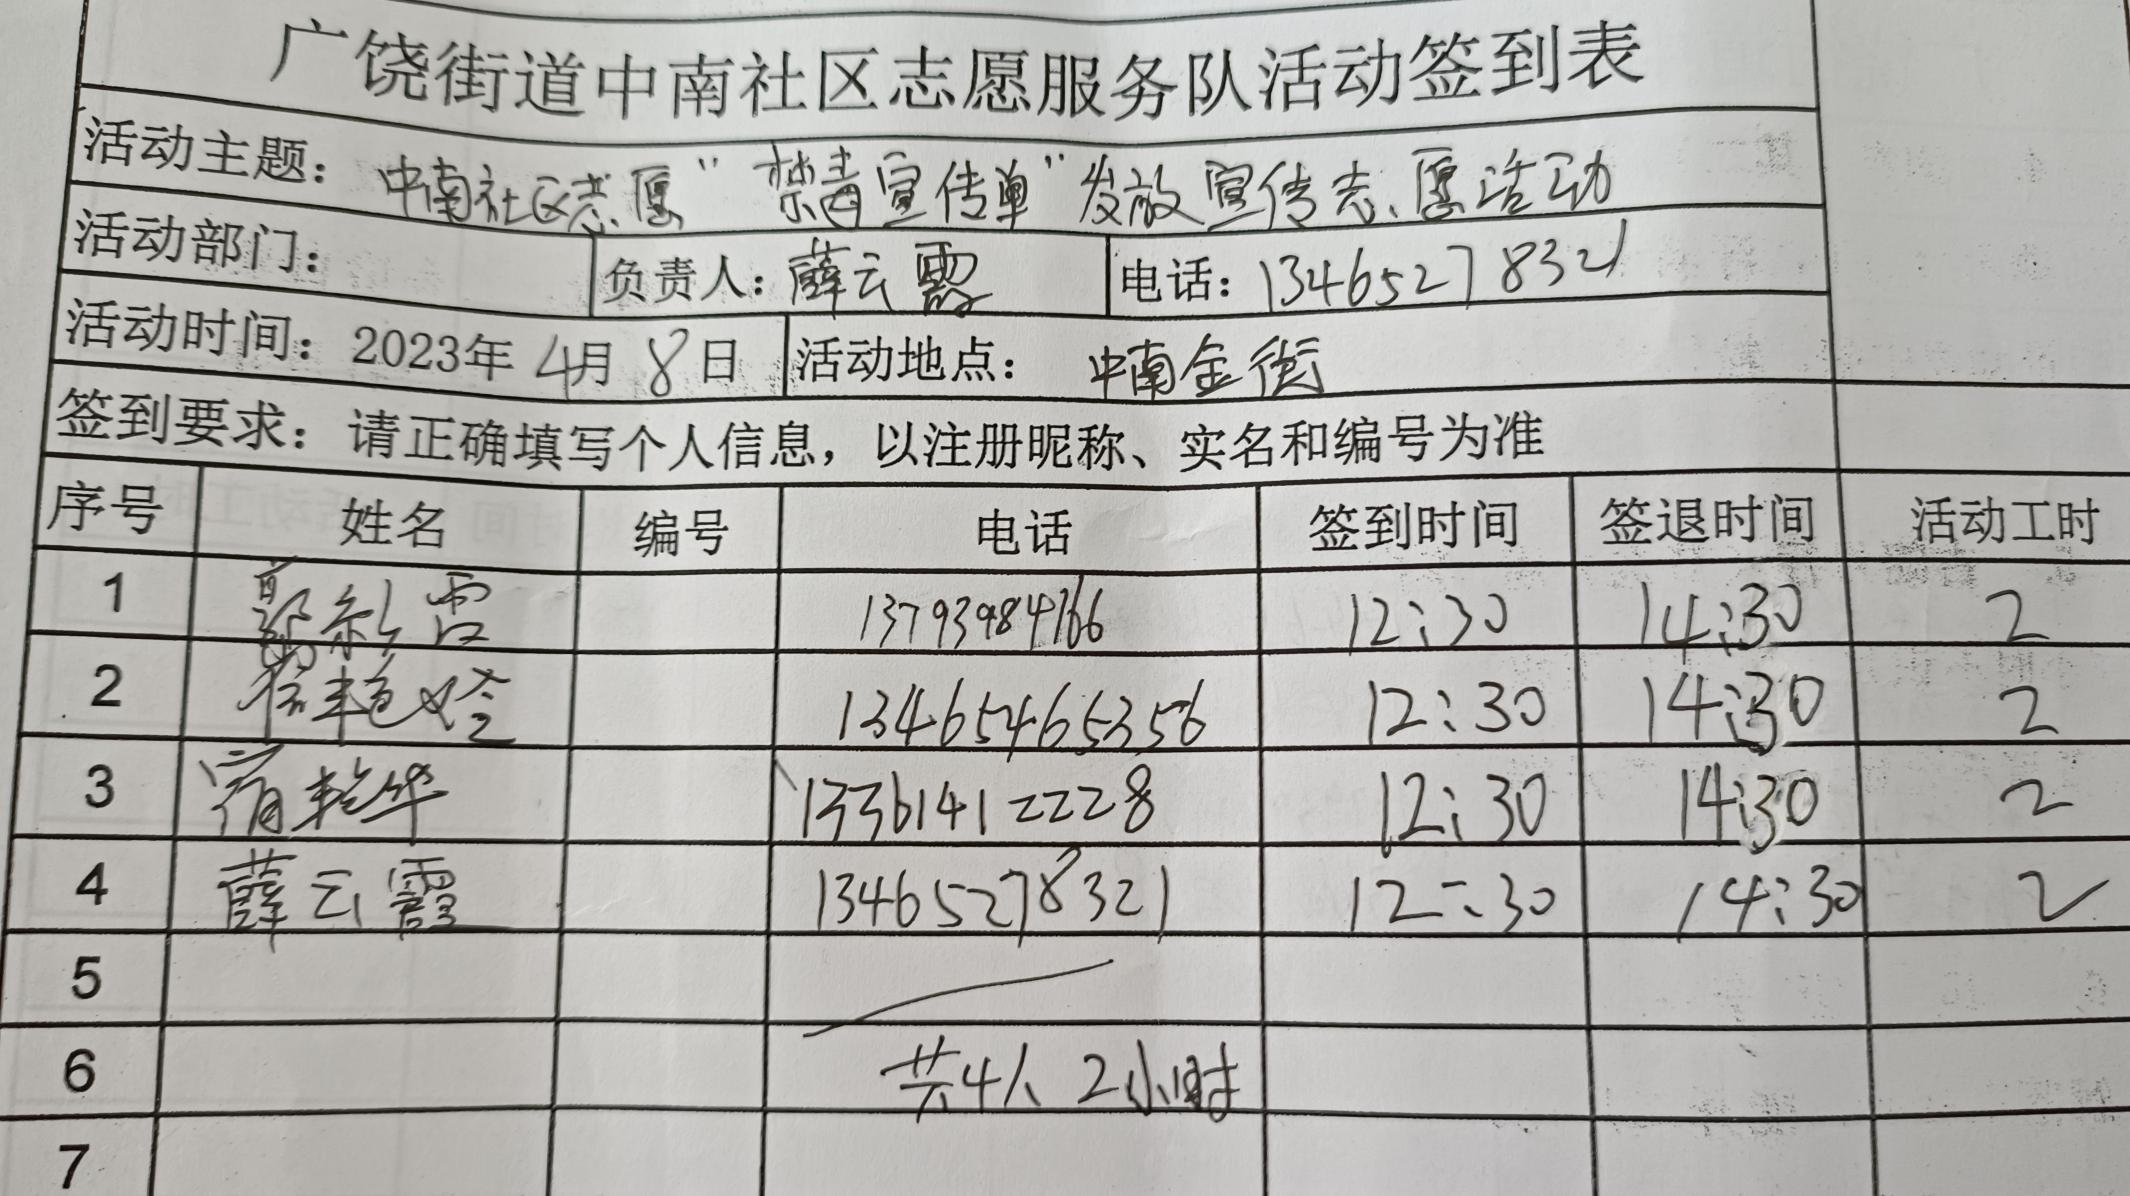 广饶街道中南社区志愿服务队活动签到表
活动主题：中南社区志愿“禁毒宣传单”发放宣传志愿活动
活动部门： 负责人：薛云霞 电话：13465278321
活动时间：2023年4月8日 活动地点：中南金街
签到要求：请正确填写个人信息，以注册昵称、实名和编号为准
序号 姓名 编号 电话 签到时间 签退时间 活动工时
1 13793984766 12:30 14:30 2
2 13465465356 12:30 14:30 2
3 13361412228 12:30 14:30 2
4 薛云霞 13465278321 12:30 14:30 2
5
6 共4人 2小时
7